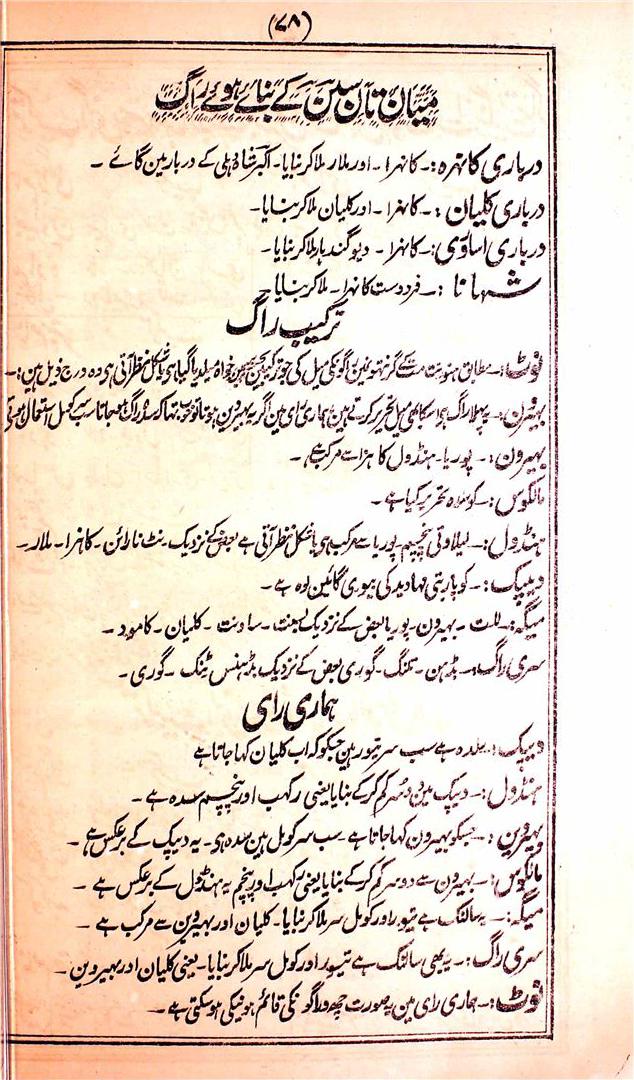 (۷۸)
میاں تان سین کے بنائے ہوئے راگ
درباری کانہرہ:۔ کانہرا۔ اور ملار ملا کر بنایا۔ اکبر شاہ دہلی کے دربار مین گائے ۔
درباری کلیان :۔ کانہرا۔ اور کلیان ملا کر بنایا۔
درباری اساوری:۔ کانہرا۔ دیوگندہار ملا کر بنایا۔
شہانا :۔ فردوست کانہرا۔ ملا کر بنایا۔
ترکیب راگ
نوٹ:۔ مطابق ہنونت مت کے گرنتھونمین راگونکی میل کی جو ترکیبین خواہ میل دیا گیا ہی یا شکل نظر آتی ہی وہ درج ذیل ہین:۔
بہیرون:۔ پہلا راگ ہے اسکا بھی میل تحریر کرتے ہین ہماری رای مین اگر یہ بہیروین ہوتا تو خوب تہا کہ سدہ راگ ہو جاتا سب کومل استعمال
بہیرون:۔ پوریا۔ ہنڈول کانہرا سے مرکب ہے۔
مالکوس:۔ کو سدہ تحریر کیا ہے۔
ہنڈول:۔ لیلاوتی پنچم پوریا سے مرکب ہی یا شکل نظر آتی ہے بعض کے نزدیک۔ نٹ نارائن۔ کانہرا۔ ملار۔
دیپک:۔ کو پاربتی مہادیو کی بیوی گائین وہ ہے۔
میگہ:۔ للت ۔ بہیرون۔ پوریا بعض کے نزدیک بسنت۔ ساونت ۔ کلیان ۔ کامود ۔
سری راگ:۔ بڈہن۔ تلنگ۔ گوری بعض کے نزدیک بڑہنس ٹنک ۔ گوری۔
ہماری رای
دیپک:۔ سدہ ہے سب سر تیور ہین جسکو کہ اب کلیان کہا جاتا ہے
ہنڈول:۔ دیپک مین دو سر کم کر کے بنایا یعنی رکہب اور پنچم سدہ ہے ۔
بہیروین:۔ جسکو بہیرون کہا جاتا ہے سب سر کومل ہین سدہ ہی۔ یہ دیپک کے برعکس ہے ۔
مالکوس:۔ بہیرون سے دو سر کم کر کے بنایا یعنی رکہب اور پنچم یہ ہنڈول کے برعکس ہے ۔
میگہ:۔ یہ سالنک ہے تیور اور کومل سر ملا کر بنایا۔ کلیان اور بہیروین سے مرکب ہے ۔
سری راگ:۔ یہ بھی سالنک ہے تیور اور کومل سر ملا کر بنایا۔ یعنی کلیان اور بہیروین ۔
نوٹ:۔ ہماری رای مین یہ صورت چھ راگونکی قائم ہونیکی ہوسکتی ہے۔